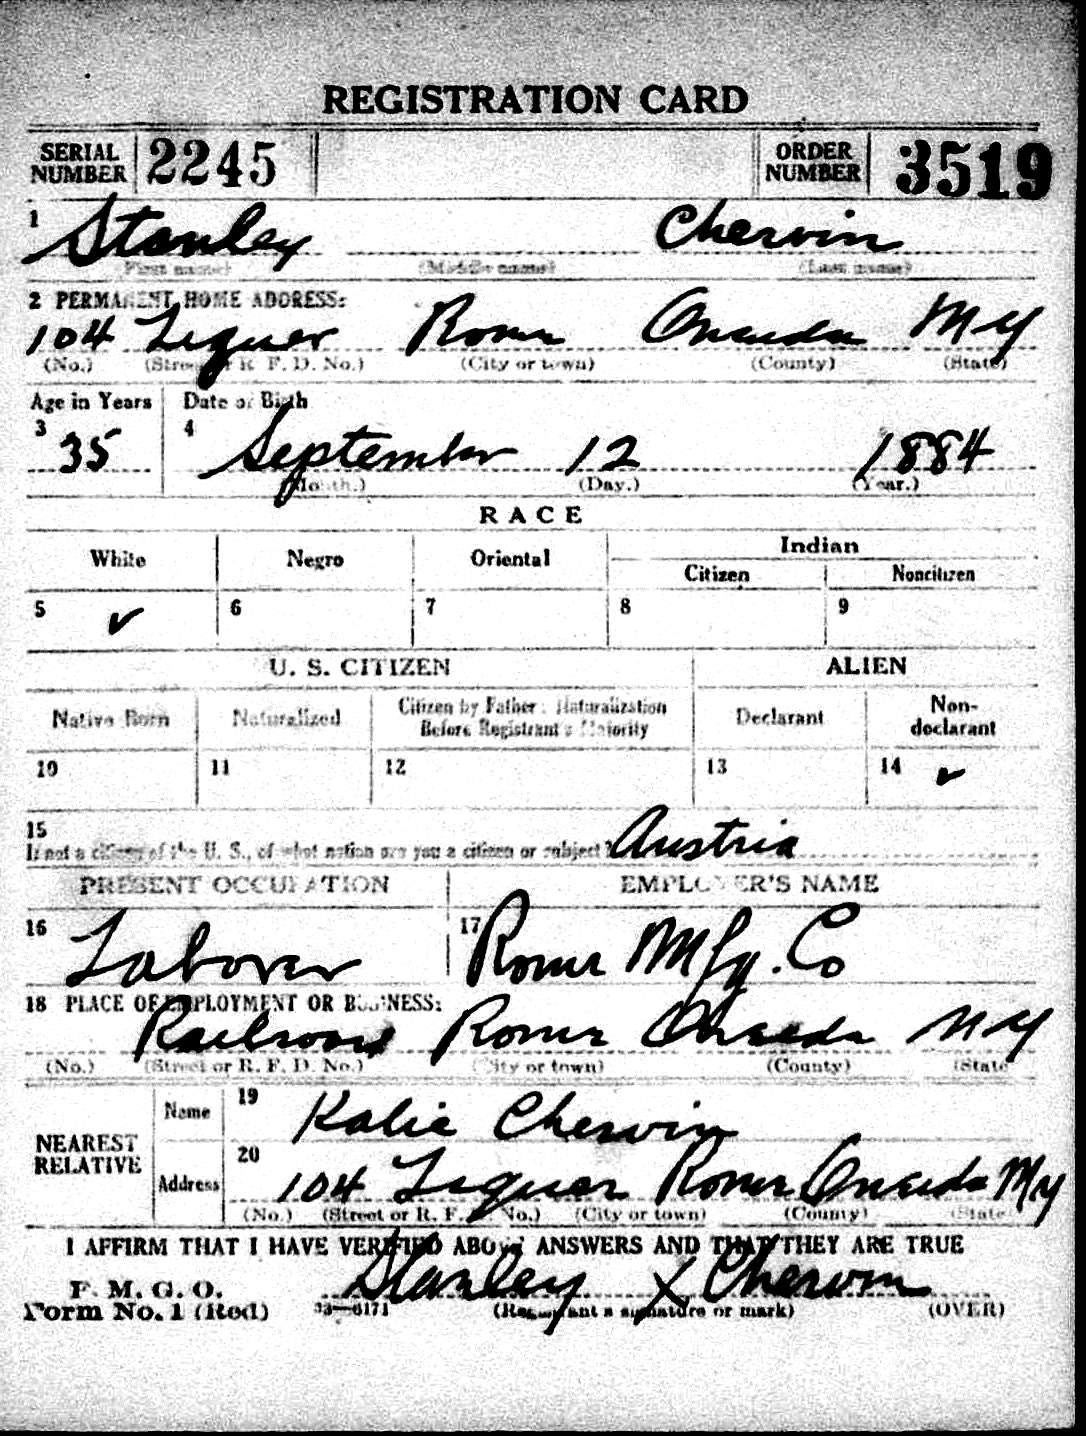 REGISTRATION CARD
SERIAL NUMBER 2245 ORDER NUMBER 3519
1 Stanley Chervin
(First name) (Middle name) (Last name)
2 PERMANENT HOME ADDRESS:
104 Rome Oneida N Y
(No.) (Street or R. F. D. No.) (City or town) (County) (State)
Age in Years Date of Birth
3 35 4 September 12 1884
(Month.) (Day.) (Year.)
RACE
White Negro Oriental Indian
Citizen Noncitizen
5 ✓ 6 7 8 9
U. S. CITIZEN ALIEN
Native Born Naturalized Citizen by Father's Naturalization Before Registrant's Majority Declarant Non-declarant
10 11 12 13 14 ✓
15
If not a citizen of the U. S., of what nation are you a citizen or subject? Austria
PRESENT OCCUPATION EMPLOYER'S NAME
16 Laborer 17 Rome Mfg. Co
18 PLACE OF EMPLOYMENT OR BUSINESS:
Railroad Rome Oneida N Y
(No.) (Street or R. F. D. No.) (City or town) (County) (State)
NEAREST RELATIVE Name 19 Katie Chervin
Address 20 104 Rome Oneida N Y
(No.) (Street or R. F. D. No.) (City or town) (County) (State)
I AFFIRM THAT I HAVE VERIFIED ABOVE ANSWERS AND THAT THEY ARE TRUE
P. M. G. O.
Form No. 1 (Red) 03—6171 Stanley X Chervin
(Registrant's signature or mark) (OVER)